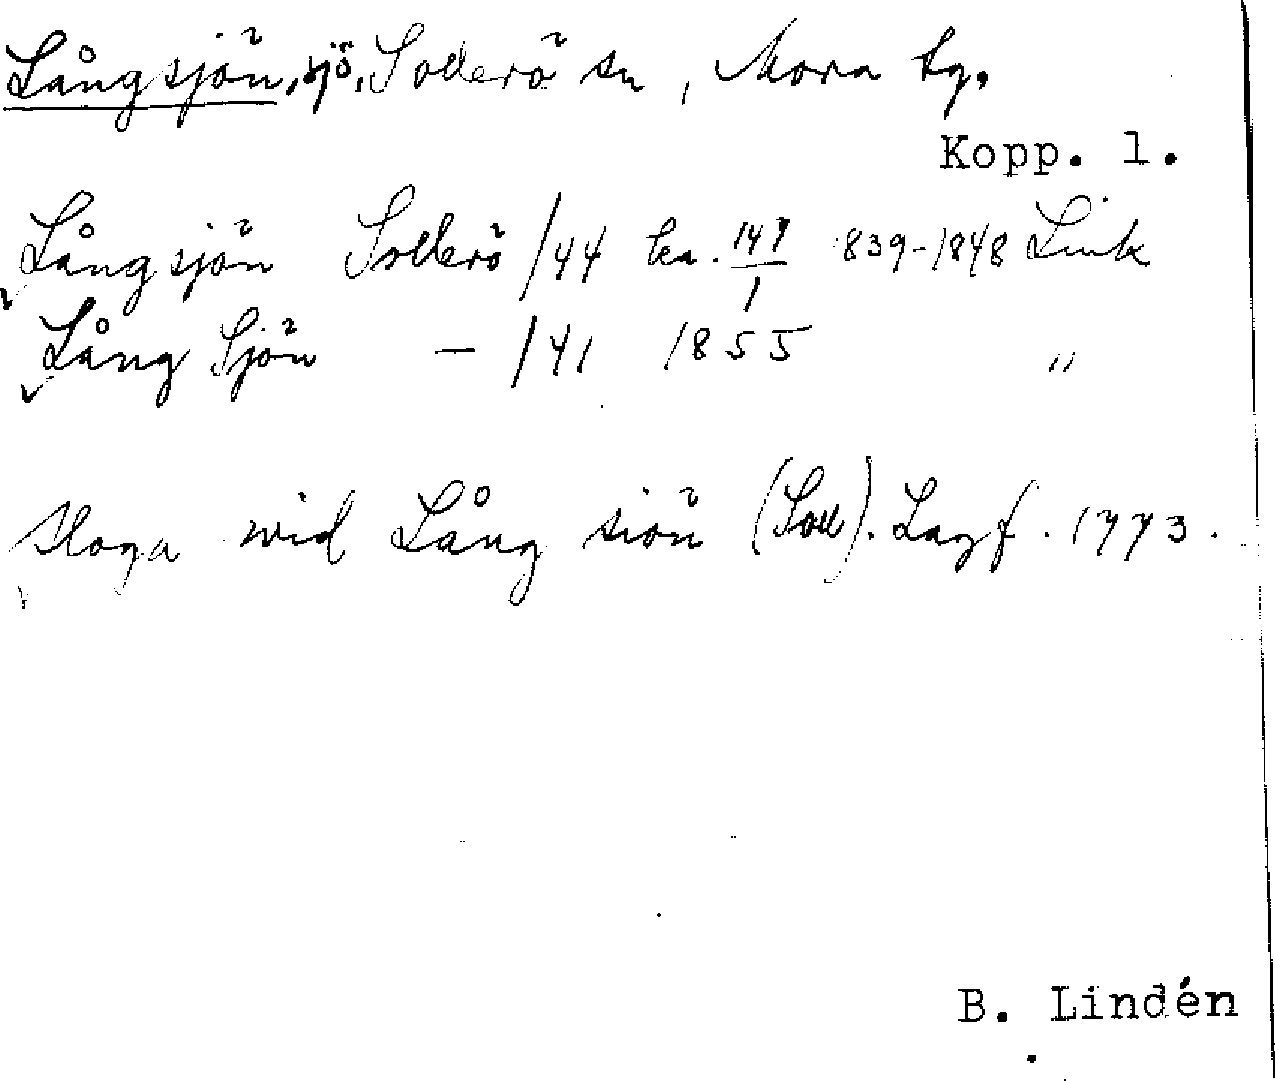 Långsjön, sjö, Sollerö sn, Mora tg.
Kopp. l.
Långsjön Sollerö /44 ka. 147/1 1839-1848 Link
Lång Sjön - /41 1855 "
sloga wid Lång siön (Soll). Lagf. 1773.
B. Lindén